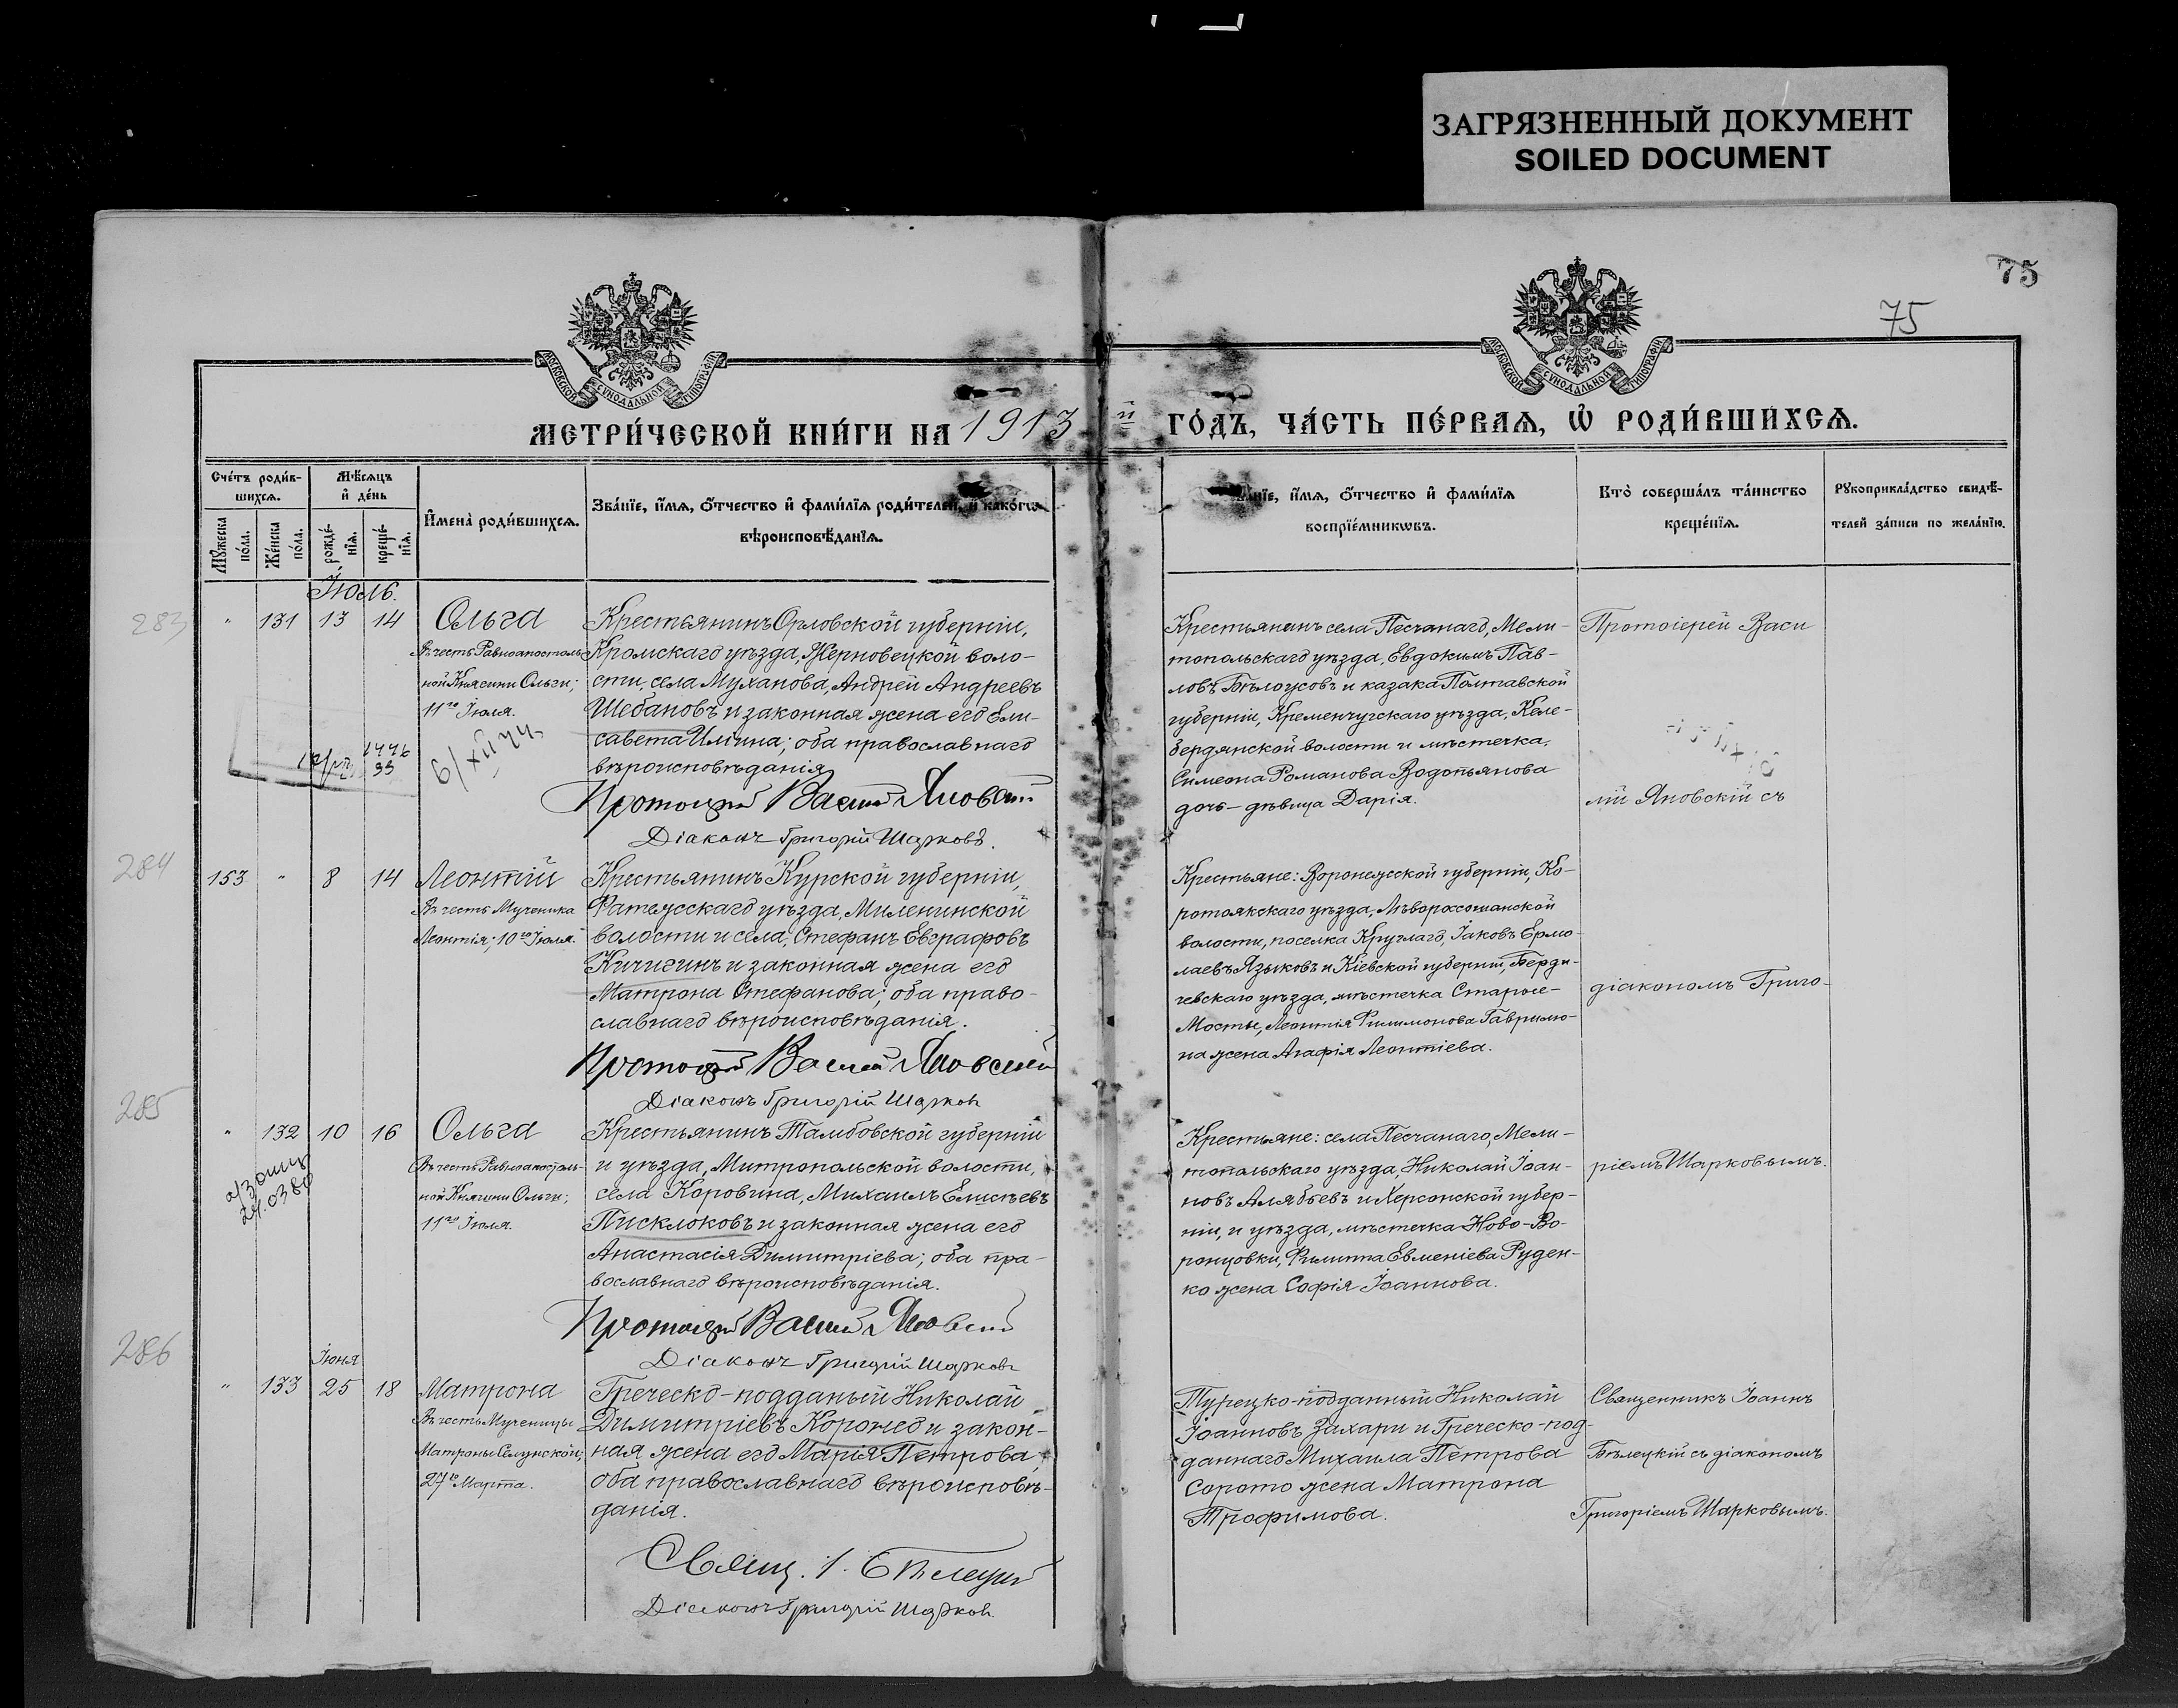 ЗАГРЯЗНЕННЫЙ ДОКУМЕНТ
SOILED DOCUMENT
75
75
МОСКОВСКОЙ СѴНОДАЛЬНОЙ ТИПОГРАФІИ
МОСКОВСКОЙ СѴНОДАЛЬНОЙ ТИПОГРАФІИ
МЕТРИ́ЧЕСКОЙ КНИ́ГИ НА 1913 й ГО́ДЪ, ЧА́СТЬ ПЕ́РВАѦ, Ѡ҆ РОДИ́ВШИХСѦ.
Сче́тъ роди́в-
шихсѧ.
Мѣ́сѧцъ
и҆ де́нь
Мꙋ́жеска по́ла.
Же́нска по́ла.
рожде́-
нїѧ.
креще́-
нїѧ.
И҆мена̀ роди́вшихсѧ.
Зва́нїе, и҆́мѧ, ѻ҆́тчество и҆ фамі́лїѧ роди́телей, и҆ како́гѡ
вѣроисповѣ́данїѧ.
Зва́нїе, и҆́мѧ, ѻ҆́тчество и҆ фамі́лїѧ
воспрїе́мникѡвъ.
Кто̀ соверша́лъ та́инство
креще́нїѧ.
Рꙋкоприкла́дство свидѣ́-
телей за́писи по жела́нїю.
Іюль.
283
" 131 13 14
Ольга
Въ честь Равноапостоль-
ной Княгини Ольги;
11го Іюля.
Крестьянинъ Орловской губерніи,
Кромскаго уѣзда, Жерновецкой воло-
сти, села Муханова, Андрей Андреевъ
Шебановъ и законная жена его Ели-
савета Ильина; оба православнаго
вѣроисповѣданія
Протоіерей Василій Яновскій
Діаконъ Григорій Шарковъ.
Крестьянинъ села Песчанаго, Мели-
топольскаго уѣзда, Евдокимъ Пав-
ловъ Бѣлоусовъ и казака Полтавской
губерніи, Кременчугскаго уѣзда, Келе-
бердянской волости и мѣстечка,
Симеона Романова Водопьянова
дочь - дѣвица Дарія.
Протоіерей Васи
лій Яновскій съ
284
153 " 8 14
Леонтій
Въ честь Мученика
Леонтія; 10го Іюля.
Крестьянинъ Курской губерніи,
Фатежсскаго уѣзда, Миленинской
волости и села, Стефанъ Евграфовъ
Кичигинъ и законная жена его
Матрона Стефанова; оба право-
славнаго вѣроисповѣданія.
Протоіерей Василій Яновскій
Діаконъ Григорій Шарковъ
Крестьяне: Воронежсской губерніи, Ко-
ротоякскаго уѣзда, Лѣвороссошанской
волости, поселка Круглаго, Іаковъ Ермо-
лаевъ Языковъ и Кіевской губерніи, Берди-
чевскаго уѣзда, мѣстечка Старые-
Мосты, Леонтія Филимонова Гаврилю-
ка жена Агафія Леонтіева.
діакономъ Григо-
285
" 132 10 16
Ольга
Въ честь Равноапостоль-
ной Княгини Ольги;
11го Іюля.
Крестьянинъ Тамбовской губерніи
и уѣзда, Митропольской волости,
села Коровина, Михаилъ Елисѣевъ
Писклоковъ и законная жена его
Анастасія Димитріева; оба пра-
вославнаго вѣроисповѣданія.
Протоіерей Василій Яновскій
Діаконъ Григорій Шарковъ
Крестьяне: села Песчанаго, Мели-
топольскаго уѣзда, Николай Іоан-
новъ Алябьевъ и Херсонской губер-
ніи, и уѣзда, мѣстечка Ново-Во-
ронцовки, Филиппа Евменіева Руден-
ко жена Софія Іоаннова.
ріемъ Шарковымъ.
286
Іюня
" 133 25 18
Матрона
Въ честь Мученицы
Матроны Селунской;
27го Марта.
Греческо-подданый Николай
Димитріевъ Коронед и закон-
ная жена его Марія Петрова,
оба православнаго вѣроисповѣ-
данія.
Свящ. І. Бѣлецкій
Діаконъ Григорій Шарковъ
Турецко-подданный Николай
Іоанновъ Захари и Греческо-под-
даннаго Михаила Петрова
Сорото жена Матрона
Трофимова.
Священникъ Іоаннъ
Бѣлецкій съ діакономъ
Григоріемъ Шарковымъ.